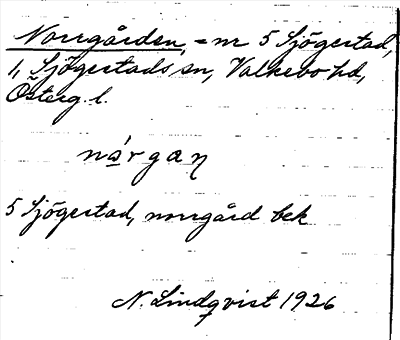 Norrgården, = nr 5 Sjögestad,
1, Sjögestads sn, Valkebo hd,
Österg. l.
nárgaɳ
5 Sjögestad, norrgård bek
N. Lindqvist 1926